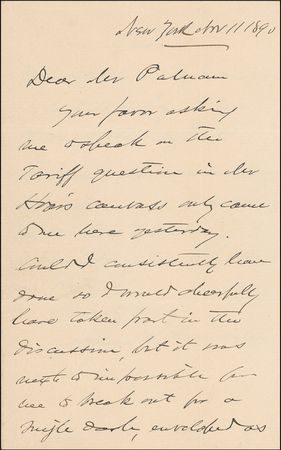 New York Nov 11 1890
Dear Mr Putnam
Your favor asking
me to speak on the
Tariff question in Mr
Hoar's canvass only came
to me here yesterday.
Could I consistently have
done so I would cheerfully
have taken part in the
discussion, but it was
next to impossible for
me to break out for a
single dash, enveloped as